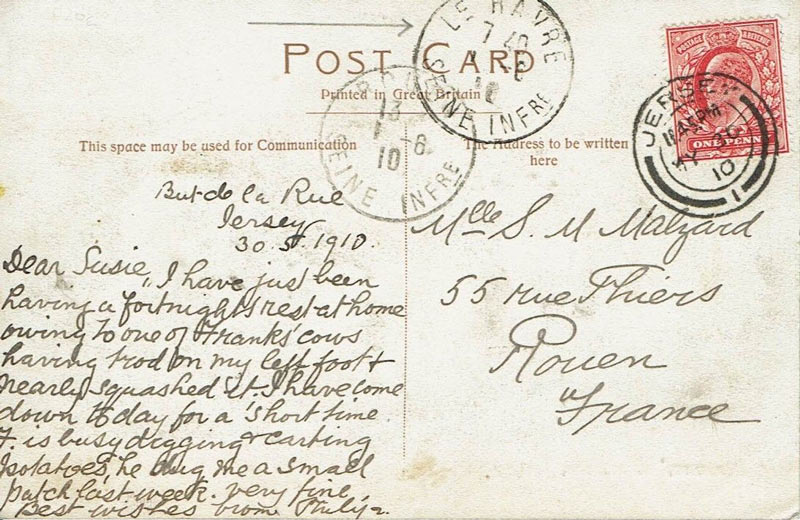 POST CARD
Printed in Great Britain
This space may be used for Communication
The Address to be written
here
LE HAVRE
SEINE INFRE
13
10
SEINE INFRE
POSTAGE & REVENUE
ONE PENN
JERSEY
PM
10
1
But de la Rue
Jersey
30.5.1910.
Dear Susie, I have just been
having a fortnight's rest at home
owing to one of Franks' cows
having trod on my left foot &
nearly squashed it. I have come
down to day for a short time.
F. is busy digging & carting
potatoes, he dug me a small
patch last week. very fine,
Best wishes from
Mlle S. M Malzard
55 rue Thiers
Rouen
France